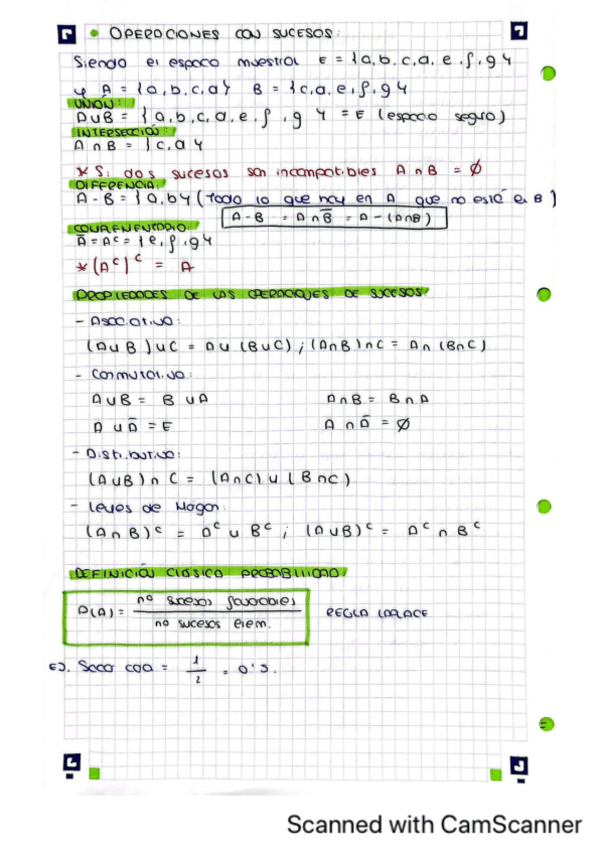 • OPERACIONES CON SUCESOS:
Siendo el espacio muestral E = {a, b, c, d, e, f, g}
y A = {a, b, c, d} B = {c, d, e, f, g}
UNIÓN:
A∪B = {a, b, c, d, e, f, g} = E (espacio seguro)
INTERSECCIÓN:
A∩B = {c, d}
* Si dos sucesos son incompatibles A∩B = Ø
DIFERENCIA:
A-B = {a, b} (Todo lo que hay en A que no esté en B)
A-B = A∩B̅ = A-(A∩B)
COMPLEMENTARIO:
A̅ = Aᶜ = {e, f, g}
* (Aᶜ)ᶜ = A
PROPIEDADES DE LAS OPERACIONES DE SUCESOS:
- Asociativa:
(A∪B)∪C = A∪(B∪C) ; (A∩B)∩C = A∩(B∩C)
- Conmutativa:
A∪B = B∪A A∩B = B∩A
A∪A̅ = E A∩A̅ = Ø
- Distributiva:
(A∪B)∩C = (A∩C)∪(B∩C)
- Leyes de Mogan:
(A∩B)ᶜ = Aᶜ∪Bᶜ ; (A∪B)ᶜ = Aᶜ∩Bᶜ
DEFINICIÓN CLÁSICA PROBABILIDAD:
P(A) = no sucesos favorables / no sucesos elem. REGLA LAPLACE
EJ. Sacar cara = 1/2 = 0'5.
Scanned with CamScanner